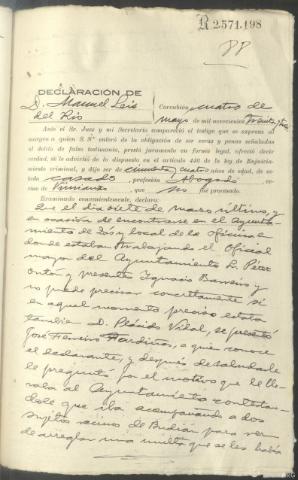 R 2.571.198
88
DECLARACION DE
D. Manuel Leis
del Río
Corcubión cuatro de
mayo de mil novecientos treinta y
Ante el Sr. Juez y mi Secretario compareció el testigo que se expresa al
margen a quien S. Sª enteró de la obligación de ser veraz y penas señaladas
al delito de falso testimonio, prestó juramento en forma legal, ofreció decir
verdad, se le advirtió de lo dispuesto en el artículo 446 de la ley de Enjuicia-
miento criminal, y dijo ser de cincuenta y cuatro años de edad, de es-
tado casado, profesión Abogado
cino de Vimianzo que no ha procesado.
Examinado convenientemente, declaró:
Que el día siete de marzo último, y
en ocasión de encontrarse en el Ayunta-
miento de Zás y local de la oficina en
donde estaban trabajando el Oficial
mayor del Ayuntamiento D. Pérez
y presente Ignacio Barreiro y
no puede precisar concretamente si
en aquel momento preciso estaba
también D. Plácido Vidal, se presentó
José Ferreiro a quien conoce
el declarante, y después de saludarle
le preguntó por el motivo que le lle-
vaba al Ayuntamiento contestan-
dole que iba acompañando a dos
sujetos vecinos de para ver
de arreglar una multa que se les había